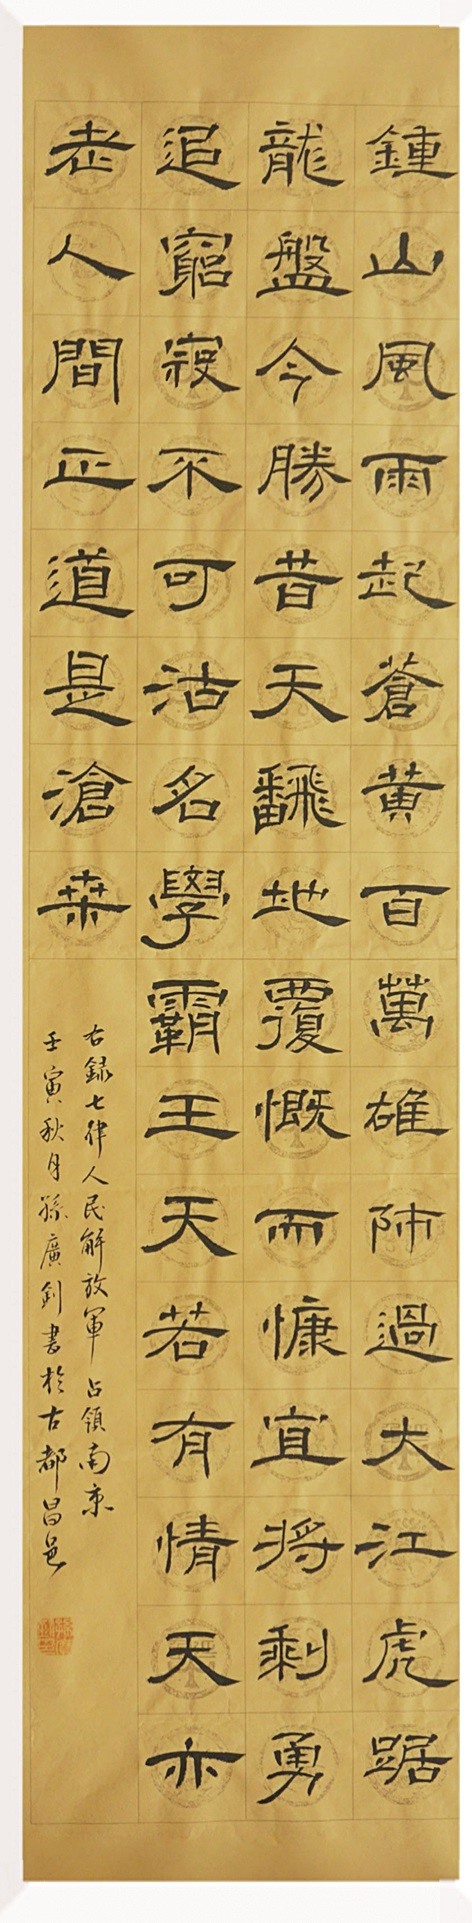 鍾山風雨起蒼黃百萬雄師過大江虎踞
龍盤今勝昔天飜地覆慨而慷宜將剩勇
追窮寇不可沽名學霸王天若有情天亦
老人間正道是滄桒
右録七律人民解放軍占領南京
壬寅秋月孫廣釗書於古都昌邑